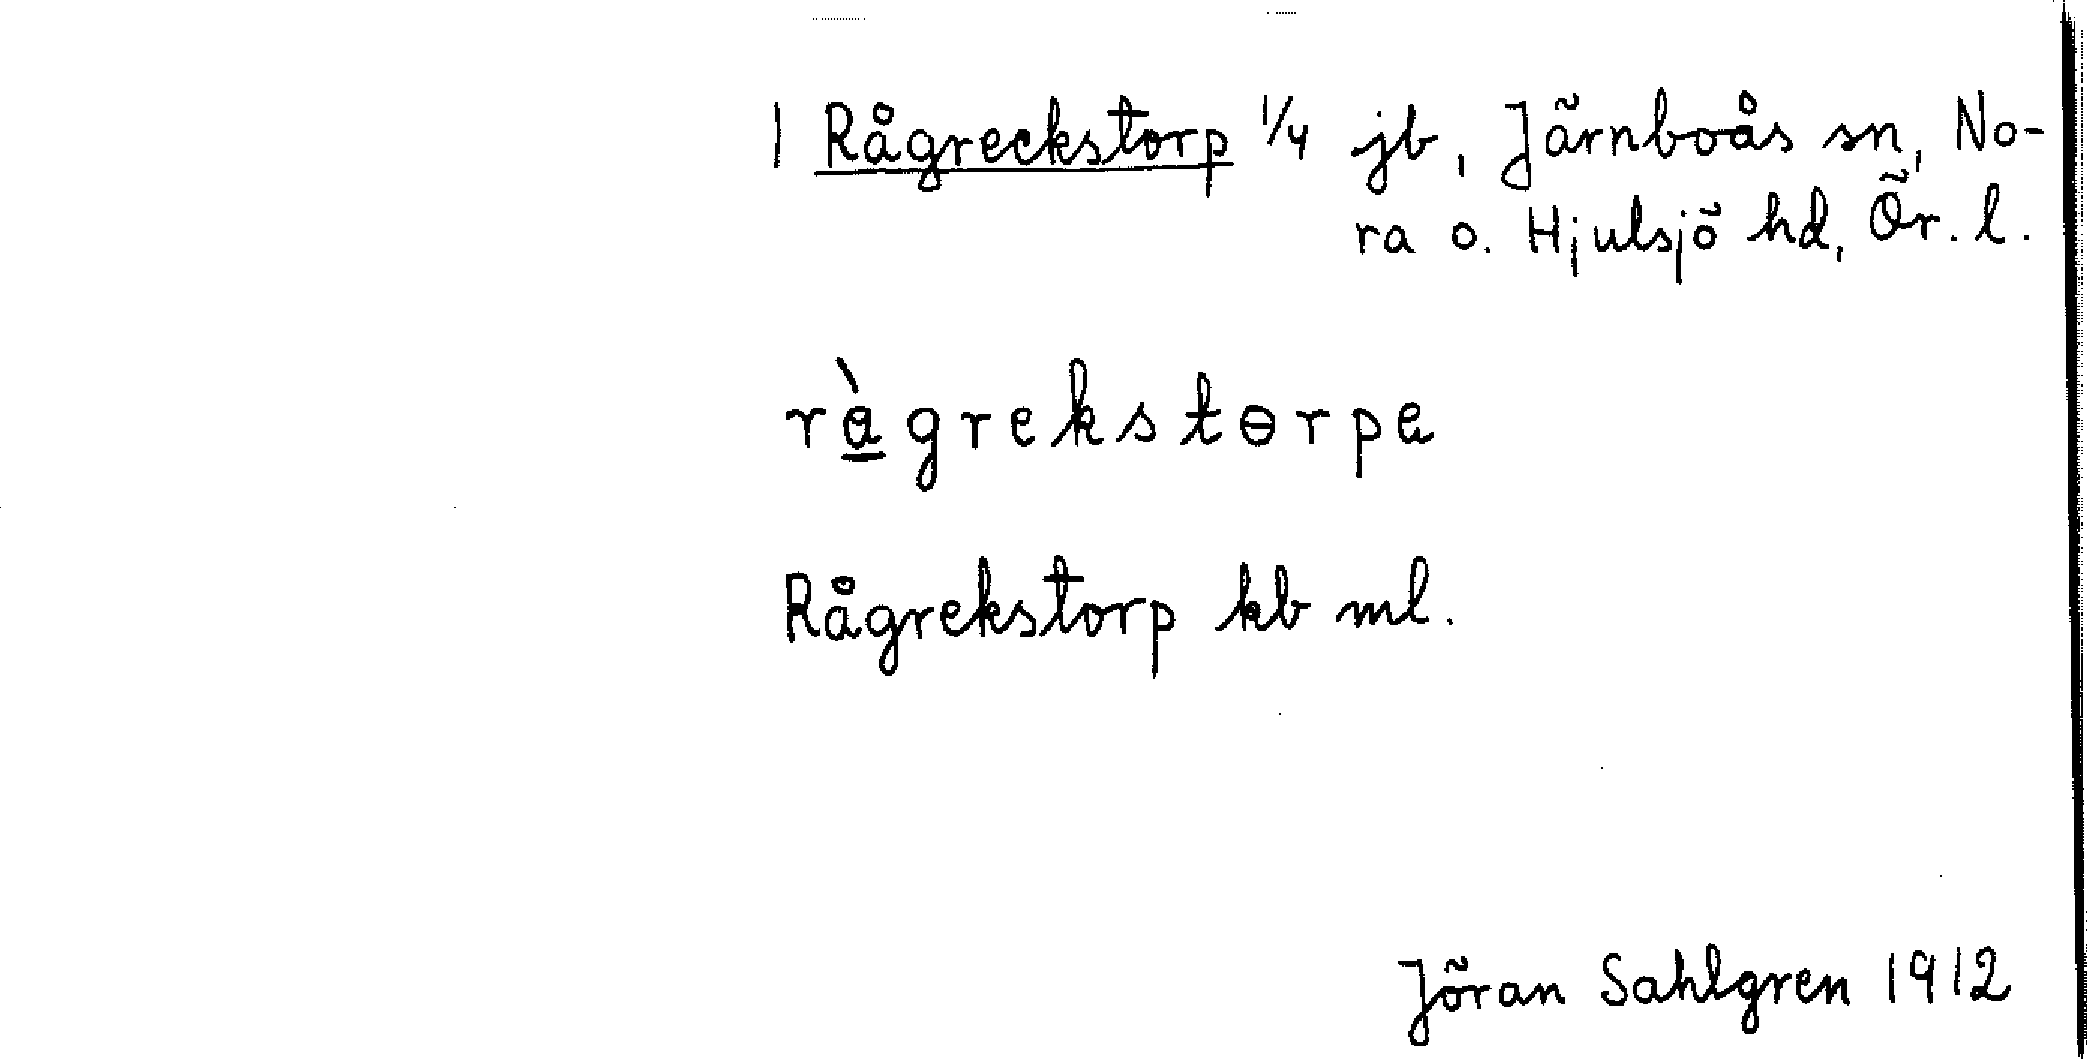 1 Rågreckstorp 1/4 jb, Järnboås sn, No-
ra o. Hjulsjö hd, Ör. l.
ràgrekstɵrpa
Rågrekstorp kb ml.
Jöran Sahlgren 1912